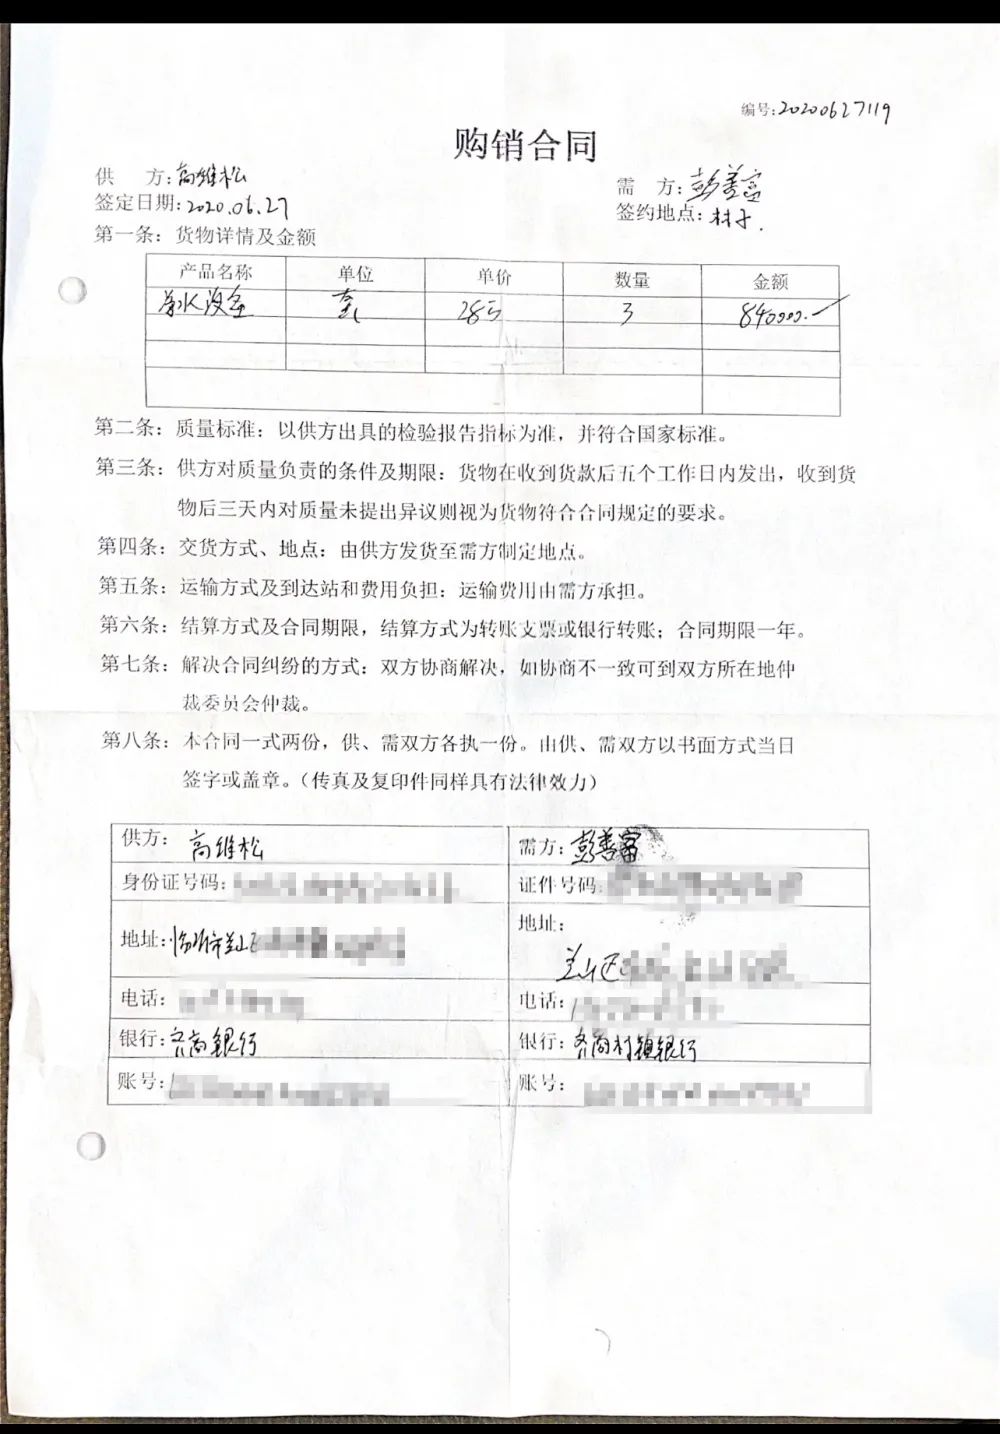 编号:20200627119
购销合同
供 方:高维松
需 方:彭善富
签定日期:2020.06.27
签约地点:
第一条：货物详情及金额
产品名称 单位 单价 数量 金额
净水设备 套 28万 3 840000.
第二条：质量标准：以供方出具的检验报告指标为准，并符合国家标准。
第三条：供方对质量负责的条件及期限：货物在收到货款后五个工作日内发出，收到货
物后三天内对质量未提出异议则视为货物符合合同规定的要求。
第四条：交货方式、地点：由供方发货至需方制定地点。
第五条：运输方式及到达站和费用负担：运输费用由需方承担。
第六条：结算方式及合同期限，结算方式为转账支票或银行转账；合同期限一年。
第七条：解决合同纠纷的方式：双方协商解决，如协商不一致可到双方所在地仲
裁委员会仲裁。
第八条：本合同一式两份，供、需双方各执一份。由供、需双方以书面方式当日
签字或盖章。（传真及复印件同样具有法律效力）
供方：高维松
需方：彭善富
身份证号码：
证件号码
地址：临沂市兰山区
地址：
兰山区
电话：
电话：
银行：齐商银行
银行：齐商村镇银行
账号：
账号：